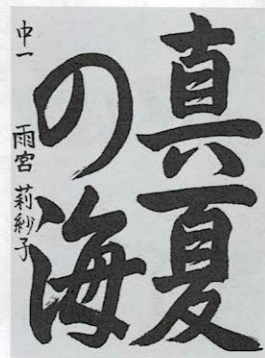 真夏
の海
中一 雨宮 莉紗子